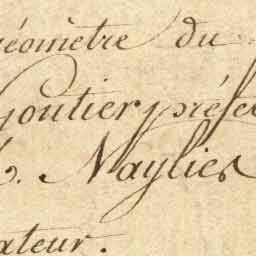 géomètre du
Goutier, préfe
. Naylies
ateur.